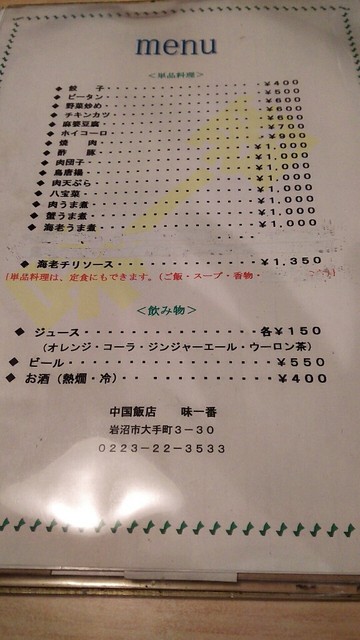 menu
＜単品料理＞
◆ 餃　子・・・・・・・・・・・・・・・￥４００
◆ ピータン・・・・・・・・・・・・・・￥５００
◆ 野菜炒め・・・・・・・・・・・・・・￥６００
◆ チキンカツ・・・・・・・・・・・・・￥６００
◆ 麻婆豆腐・・・・・・・・・・・・・・￥７００
◆ ホイコーロ・・・・・・・・・・・・・￥９００
◆ 焼　肉・・・・・・・・・・・・・・・￥１,０００
◆ 酢　豚・・・・・・・・・・・・・・・￥１,０００
◆ 肉団子・・・・・・・・・・・・・・・￥１,０００
◆ 鳥唐揚・・・・・・・・・・・・・・・￥１,０００
◆ 肉天ぷら・・・・・・・・・・・・・・￥１,０００
◆ 八宝菜・・・・・・・・・・・・・・・￥１,０００
◆ 肉うま煮・・・・・・・・・・・・・・￥１,０００
◆ 蟹うま煮・・・・・・・・・・・・・・￥１,０００
◆ 海老うま煮・・・・・・・・・・・・・￥１,０００
◆ 海老チリソース・・・・・・・・・・・￥１,３５０
（単品料理は、定食にもできます。（ご飯・スープ・香物・
＜飲み物＞
◆ ジュース・・・・・・・・・・・・・各￥１５０
（オレンジ・コーラ・ジンジャーエール・ウーロン茶）
◆ ビール・・・・・・・・・・・・・・・￥５５０
◆ お酒（熱燗・冷）・・・・・・・・・・￥４００
中国飯店　味一番
岩沼市大手町３－３０
０２２３－２２－３５３３